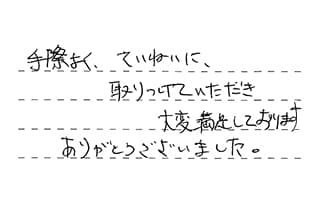 手際よく、ていねいに、
取りつけていただき
大変満足しております
ありがとうございました。